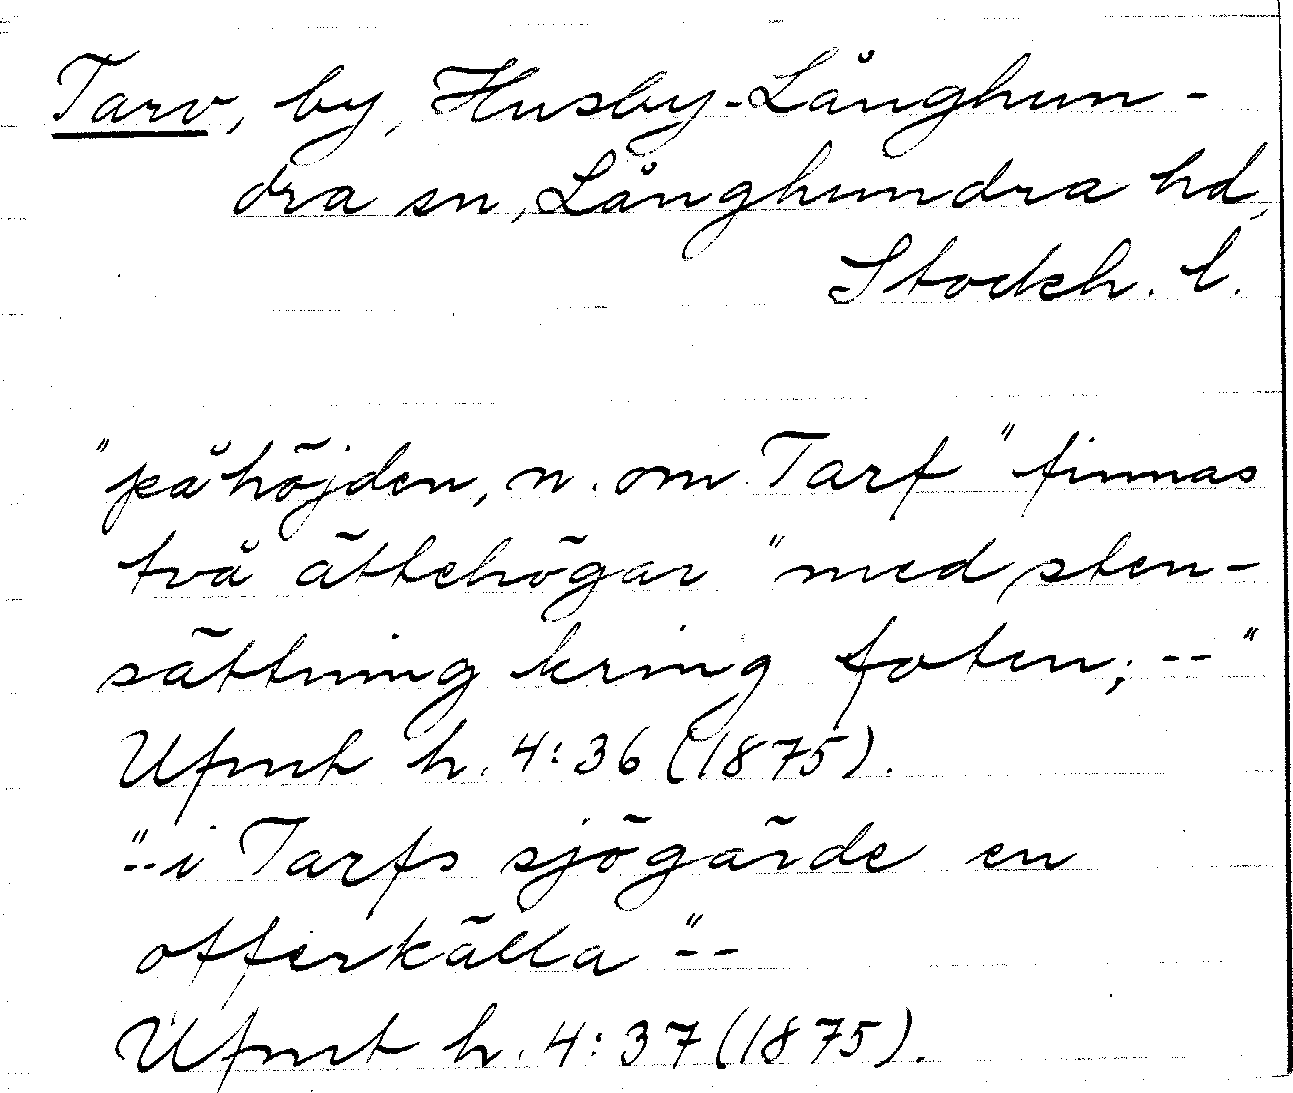 Tarv, by, Husby-Långhun-
dra sn, Långhundra hd,
Stockh. l.
"på höjden, n. om Tarf" finnas
två ättehögar "med sten-
sättning kring foten; --"
Ufmt h. 4:36 (1875).
"--i Tarfs sjögärde en
offerkälla"--
Ufmt h. 4:37 (1875).